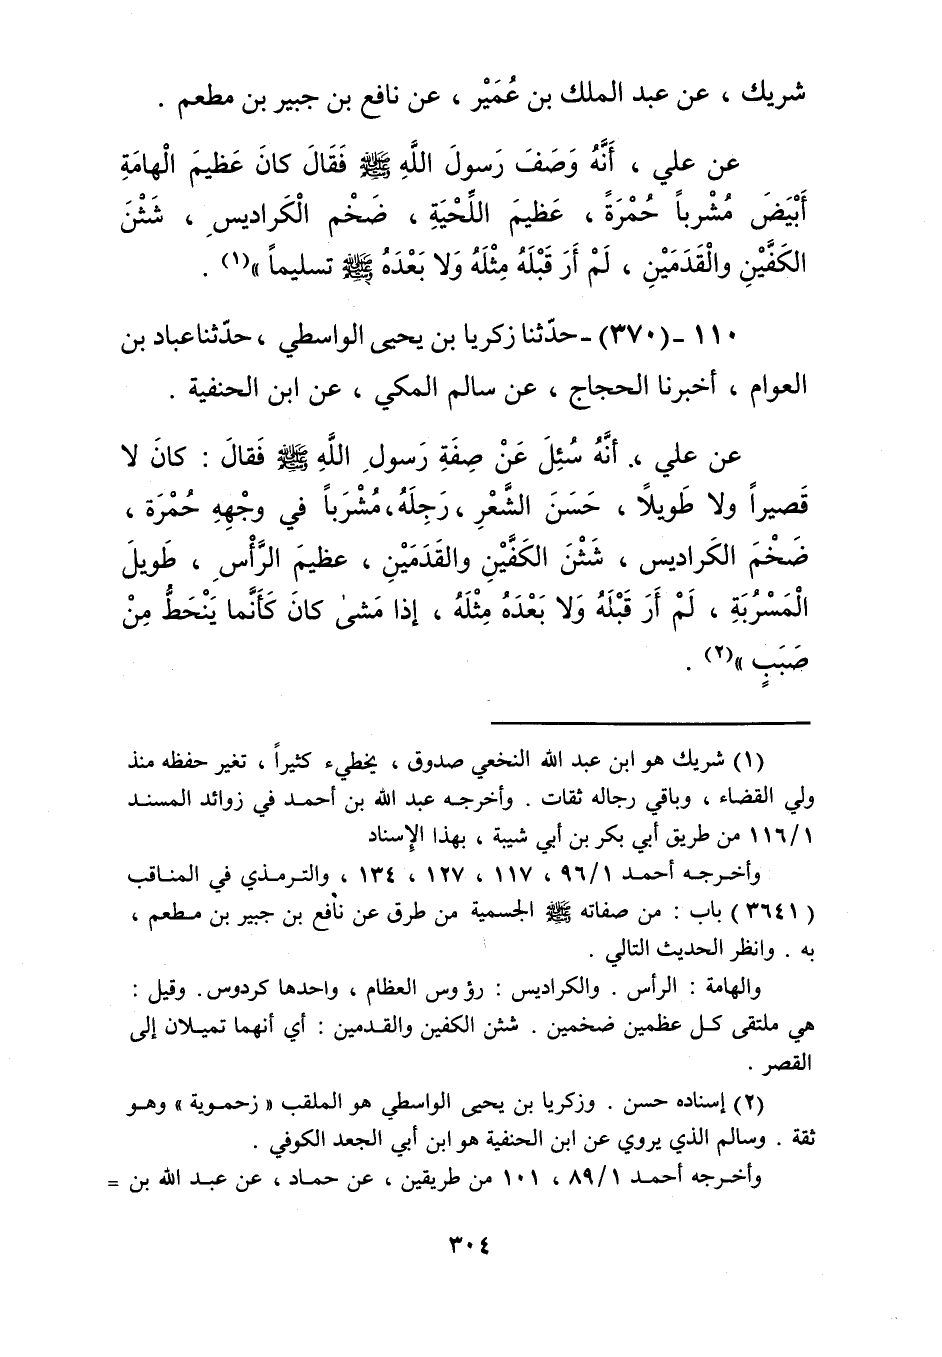 شريك ، عن عبد الملك بن عُمَيْر ، عن نافع بن جبير بن مطعم .
عن علي ، أَنَّهُ وَصَفَ رَسولَ اللَّهِ ﷺ فَقَالَ كانَ عَظيمَ الْهامَةِ
أَبْيَضَ مُشْرباً حُمْرَةً ، عَظيمَ اللِّحْيَةِ ، ضَخْم الْكَراديسِ ، شَثْنَ
الكَفَّيْنِ والْقَدَمَيْنِ ، لَمْ أَرَ قَبْلَهُ مِثْلَهُ وَلا بَعْدَهُ ﷺ تسليماً »(١) .
١١٠ - (٣٧٠) - حدّثنا زكريا بن يحيى الواسطي ، حدّثنا عباد بن
العوام ، أخبرنا الحجاج ، عن سالم المكي ، عن ابن الحنفية .
عن علي ، أنَّهُ سُئِلَ عَنْ صِفَةِ رَسولِ اللَّهِ ﷺ فَقالَ : كانَ لا
قَصيراً ولا طَويلاً ، حَسَنَ الشَّعْرِ ، رَجِلَهُ، مُشْرَباً في وجْهِهِ حُمْرَة ،
ضَخْمَ الكَراديسِ ، شَثْنَ الكَفَّيْنِ والقَدَمَيْنِ ، عظيمَ الرَّأْسِ ، طَويلَ
الْمَسْرُبَةِ ، لَمْ أَرَ قَبْلَهُ وَلا بَعْدَهُ مِثْلَهُ ، إذا مَشىٰ كانَ كَأَنَّما يَنْحَطُّ مِنْ
صَبَبٍ »(٢) .
(١) شريك هو ابن عبد الله النخعي صدوق ، يخطيء كثيراً ، تغير حفظه منذ
ولي القضاء ، وباقي رجاله ثقات . وأخرجه عبد الله بن أحمد في زوائد المسند
١١٦/١ من طريق أبي بكر بن أبي شيبة ، بهذا الإسناد
وأخرجه أحمد ٩٦/١ ، ١١٧ ، ١٢٧ ، ١٣٤ ، والترمذي في المناقب
(٣٦٤١) باب : من صفاته ﷺ الجسمية من طرق عن نافع بن جبير بن مطعم ،
به . وانظر الحديث التالي .
والهامة : الرأس . والكراديس : رؤوس العظام ، واحدها كردوس. وقيل :
هي ملتقى كل عظمين ضخمين . شثن الكفين والقدمين : أي أنهما تميلان إلى
القصر .
(٢) إسناده حسن . وزكريا بن يحيى الواسطي هو الملقب « زحموية » وهو
ثقة . وسالم الذي يروي عن ابن الحنفية هو ابن أبي الجعد الكوفي .
وأخرجه أحمد ٨٩/١ ، ١٠١ من طريقين ، عن حماد ، عن عبد الله بن =
٣٠٤